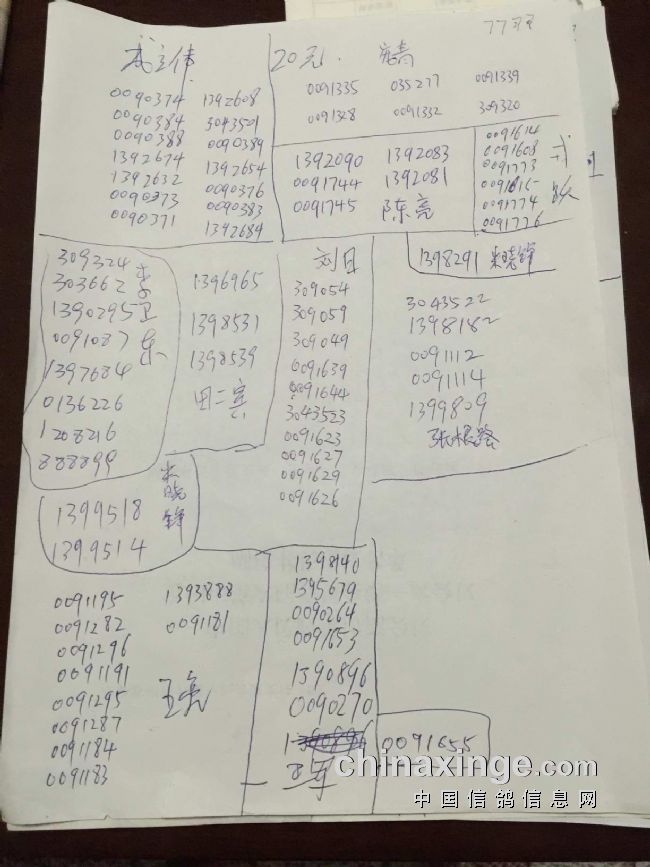 77羽
20元.
0090374 1392608
0090384 3043501
0090388 0090389
1392674 1392654
1392632 0090376
0090373 0090383
0090371 1392684
0091335 035277 0091339
0091328 0091332 309320
1392090 1392083
0091744 1392081
0091745 陈亮
0091614
0091608
0091773
0091774
0091776
309324
303662 李
1390295 卫
0091087 东
1397684
0136226
1208216
888899
1396965
1398531
1398539
田二宾
刘日
309054
309059
309049
0091639
0091644
3043523
0091623
0091627
0091629
0091626
1398291 朱晓锋
3043522
1398182
0091112
0091114
1399809
张根路
1399518 朱晓锋
1399514
0091195 1393888
0091282 0091181
0091296
0091191
0091295 王亮
0091287
0091184
0091183
1398140
1395679
0090264
0091653
1390896
0090270
0091655
王军
chinaxinge.com
中国信鸽信息网